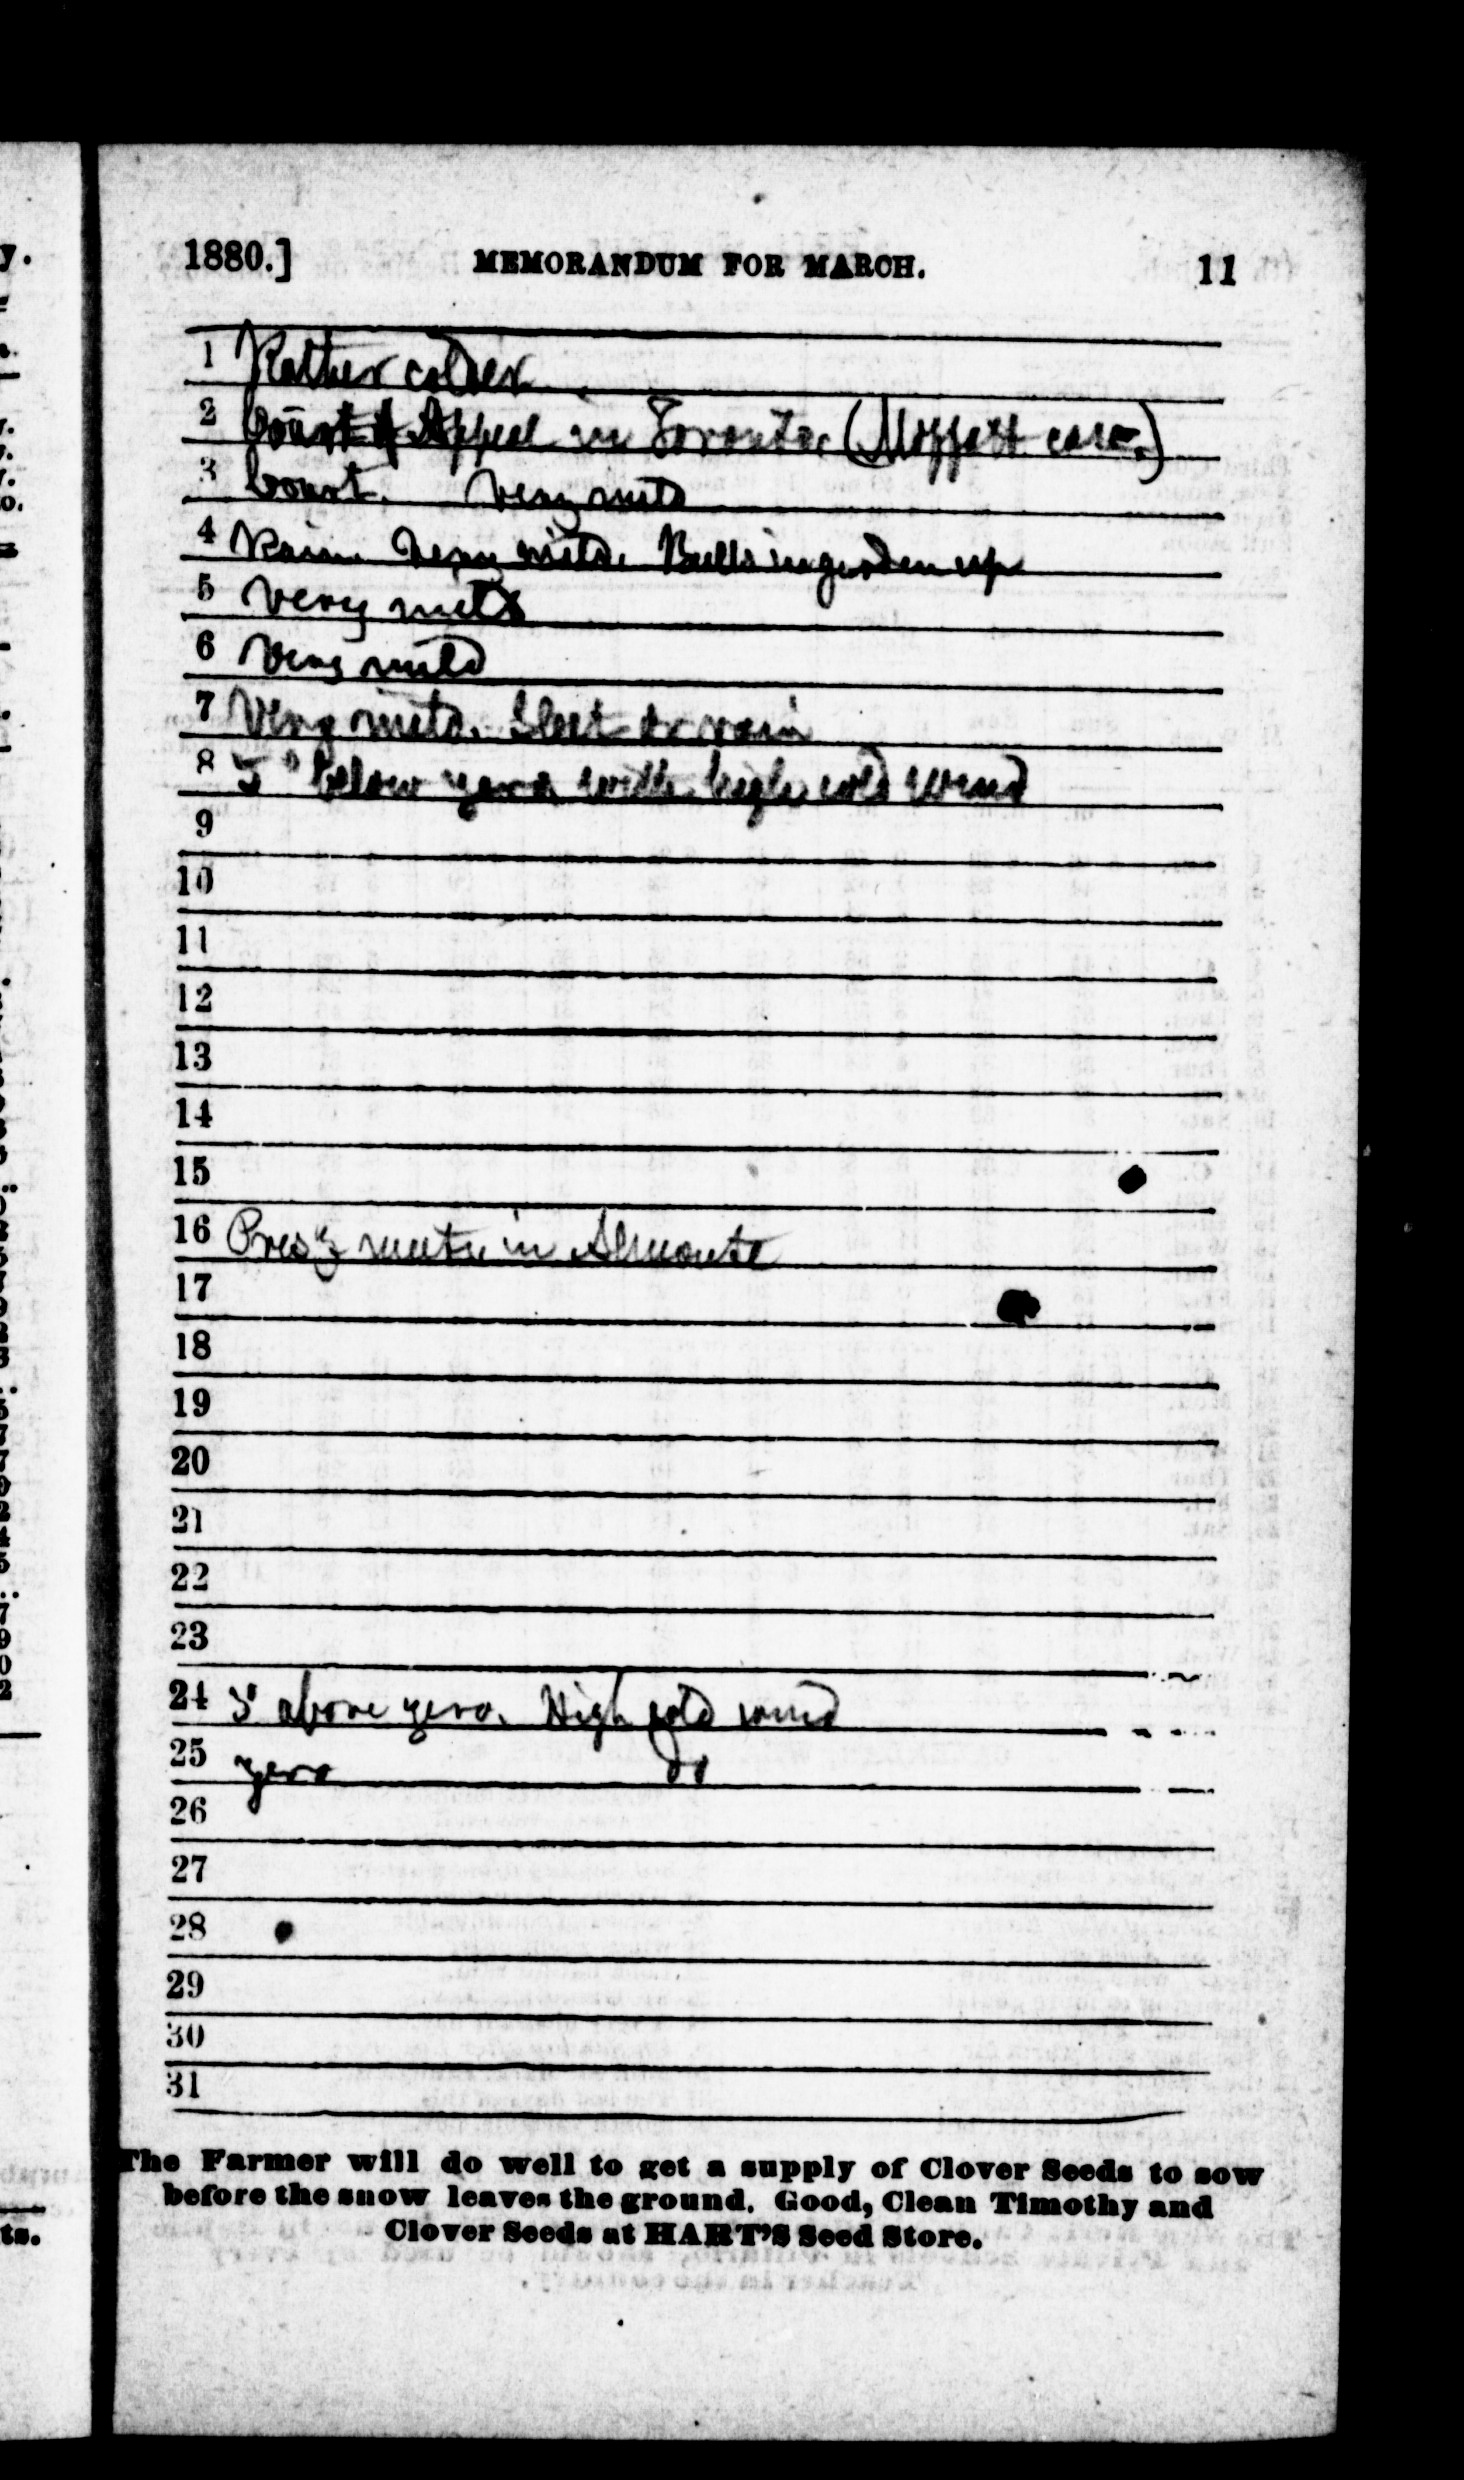 1880.] MEMORANDUM FOR MARCH. 11
1 Rather colder
2 Court of Appeal in Toronto (Moffatt case.)
3 Court. Very mild
4 Rain. Very mild. Bulbs in garden up
5 Very mild
6 Very mild
7 Very mild. Sleet & rain
8 5° below zero with high cold wind
9
10
11
12
13
14
15
16 Presy meets in Almonte
17
18
19
20
21
22
23
24 5° above zero. High cold wind
25 zero do
26
27
28
29
30
31
The Farmer will do well to get a supply of Clover Seeds to sow
before the snow leaves the ground. Good, Clean Timothy and
Clover Seeds at HART'S Seed Store.